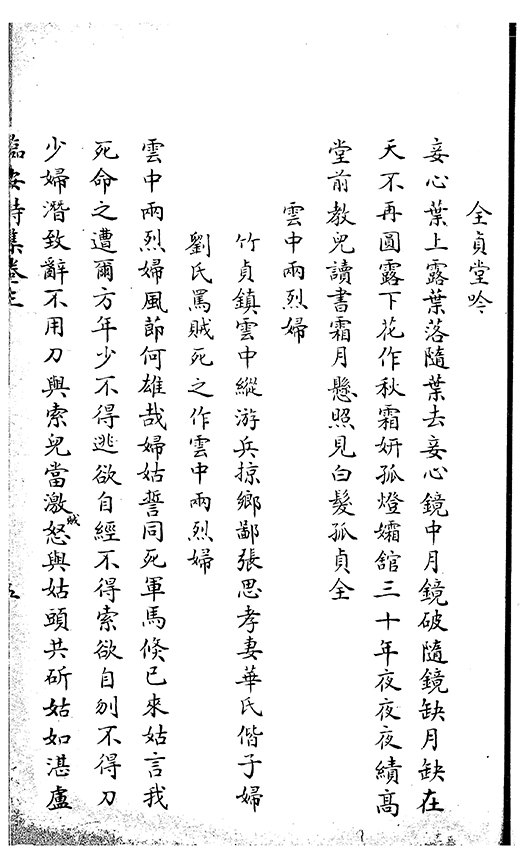 全貞堂吟
妾心葉上露葉落隨葉去妾心鏡中月鏡破隨鏡缺月缺在
天不再圓露下花作秋霜妍孤燈孀舘三十年夜夜夜績髙
堂前教兒讀書霜月懸照見白髮孤貞全
雲中兩烈婦
竹貞鎮雲中縱游兵掠鄉鄙張思孝妻華氏偕子婦
劉氏罵賊死之作雲中兩烈婦
雲中兩烈婦風節何雄哉婦姑誓同死軍馬倏已來姑言我
死命之遭爾方年少不得逃欲自經不得索欲自刎不得刀
少婦潛致辭不用刀與索兒當激賊怒與姑頭共斫姑如湛盧
臨安詩集卷三
五